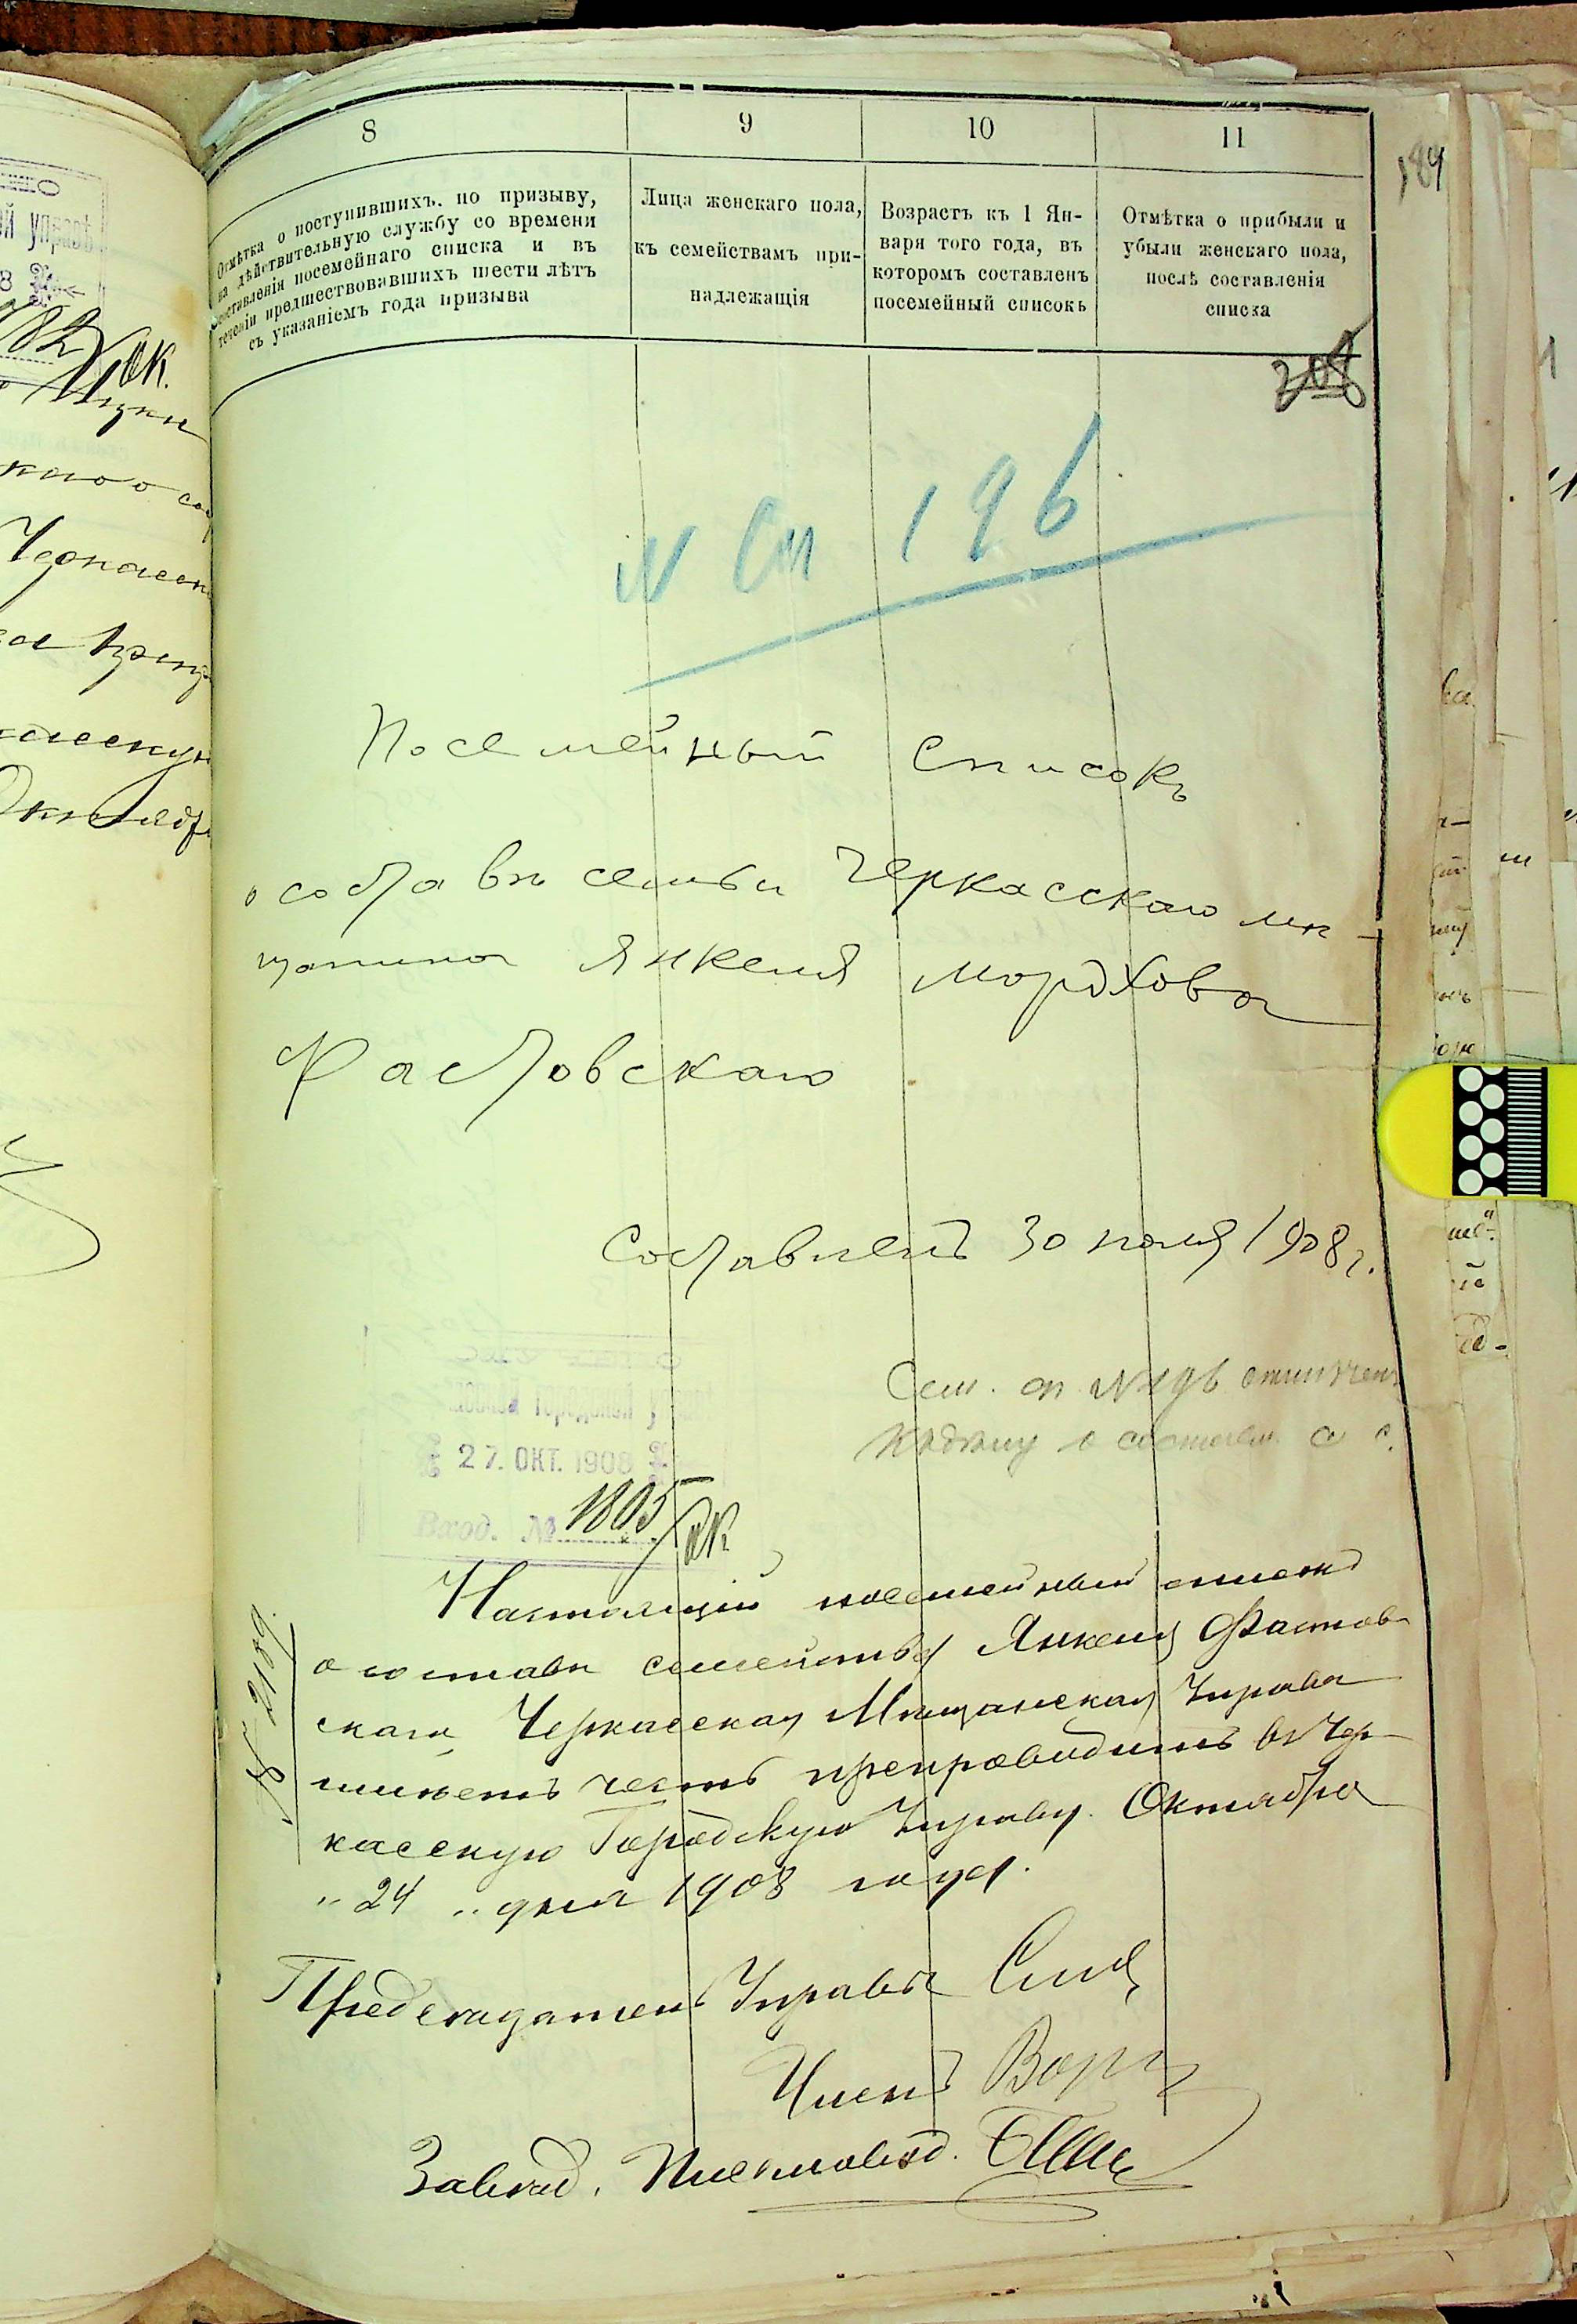 8
9
10
11
184
Отмѣтка о поступившихъ, по призыву,
на дѣйствительную службу со времени
составленія посемейнаго списка и въ
теченіи предшествовавшихъ шести лѣтъ
съ указаніемъ года призыва
Лица женскаго пола,
къ семействамъ при-
надлежащія
Возрастъ къ 1 Ян-
варя того года, въ
которомъ составленъ
посемейный списокъ
Отмѣтка о прибыли и
убыли женскаго пола,
послѣ составленія
списка
N Сп 196
Посемейный Списокъ
о составѣ семьи Черкасскаго мѣ-
щанина Янкеля Мордхова
Фастовскаго
Составленъ 30 июля 1908 г.
Сем. сп. N 196
27. ОКТ. 1908
Вход. № 1805/ОК
№ 2189
Настоящій посемейный списокъ
о составѣ семейства Янкеля Фастов
скаго, Черкасская Мѣщанская Управа
имѣетъ честь препроводить въ Чер-
касскую Городскую Управу. Октября
„ 24 „ дня 1908 года.
Предсѣдатель Управы
Членъ
Завѣд. Письмовод.